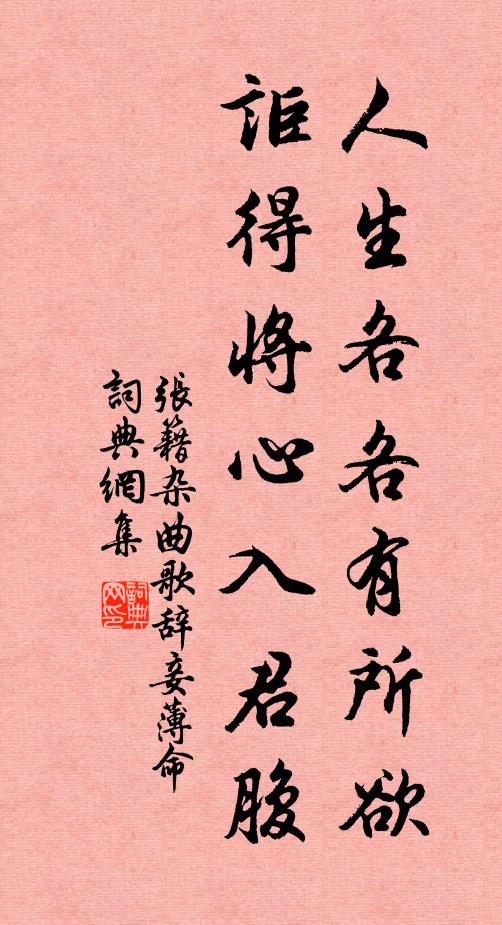 人生各各有所欲
詎得將心入君腹
張籍杂曲歌辞妾薄命
詞典網集
詞典网印